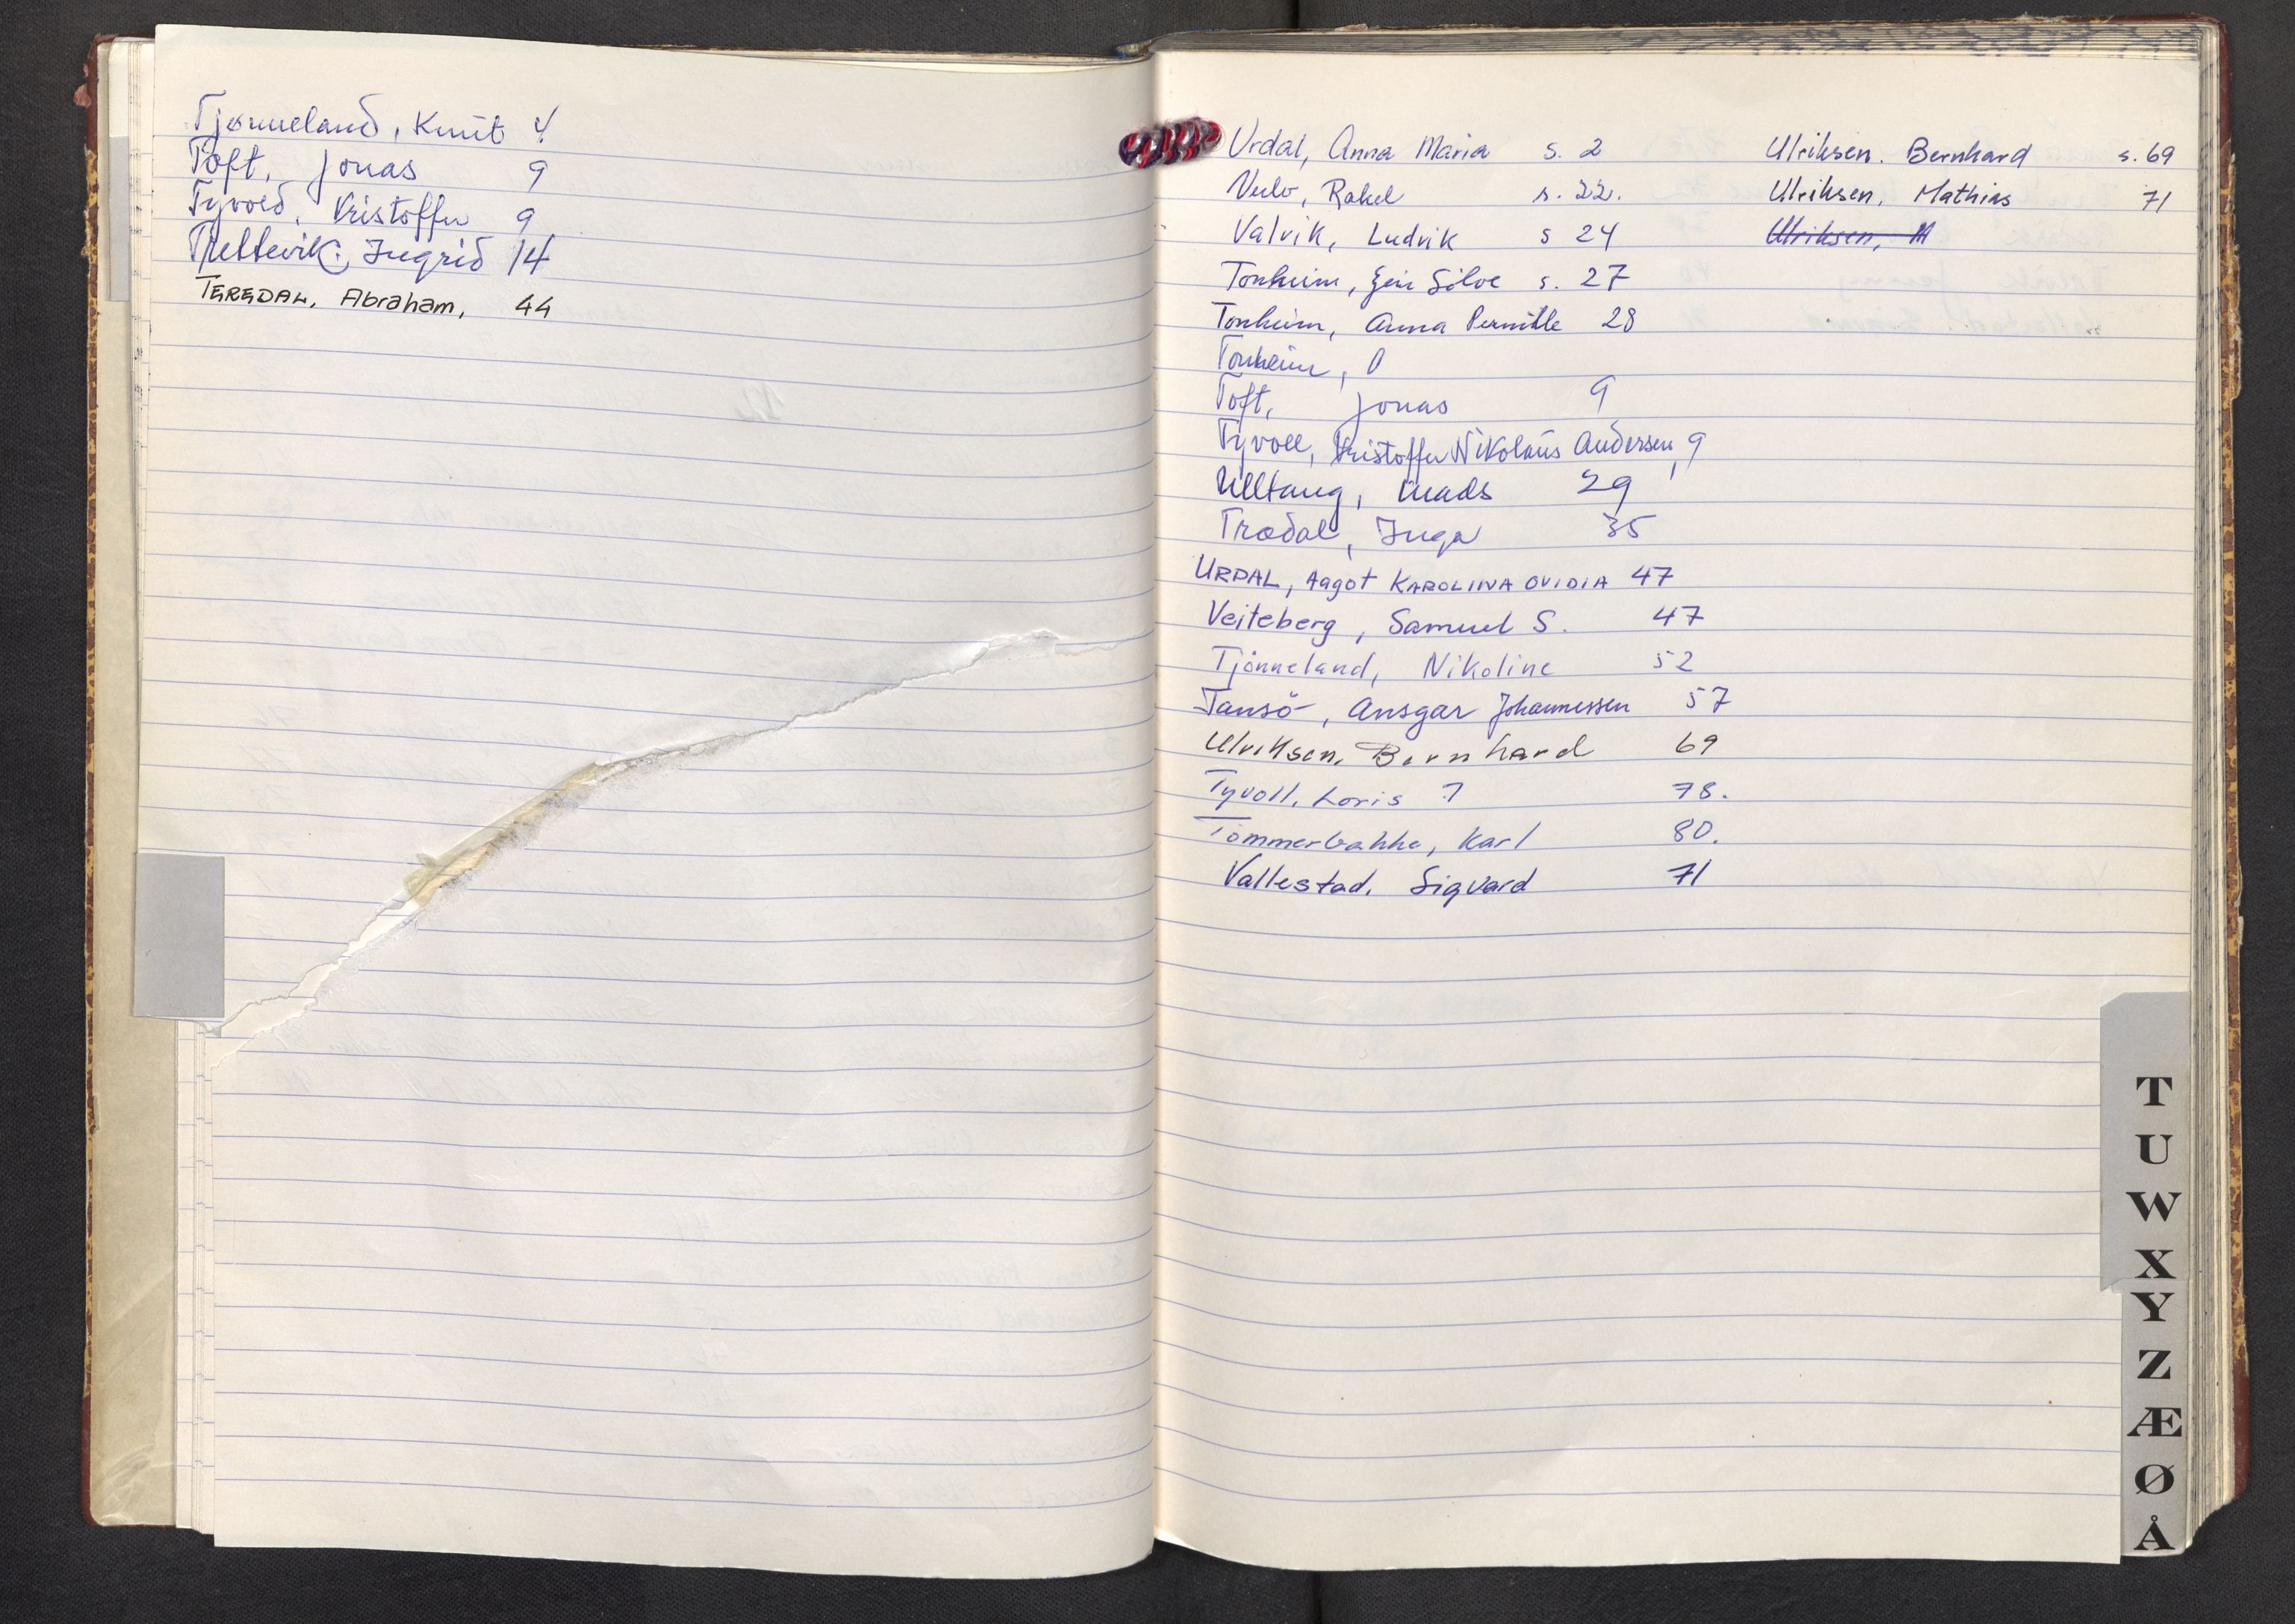 Tjønneland, Knut 4
Toft, Jonas 9
Tyvold, Kristoffer 9
Trettevik, Ingrid 14
TEREDAL, Abraham, 44
Urdal, Anna Maria s. 2
Rakel s. 22.
Valvik, Ludvik s 24
Tonheim, Geir Sölve s. 27
Tonheim, Anna Pernille 28
Tonheim, O
Toft, Jonas 9
Tyvoll, Kristoffer Nikolaus Andersen, 9
Ulltang, Mads 29
Tradal, Inga 35
URDAL, Aagot KAROLINA OVIDIA 47
Veiteberg, Samuel S. 47
Tjönneland, Nikoline 52
Tansö, Ansgar Johannessen 57
Ulriksen, Bernhard 69
Tyvoll, Loris ? 78.
Tömmerbakke, Karl 80.
Vallestad, Sigvard 71
Ulriksen. Bernhard s. 69
Ulriksen, Mathias 71
Ulriksen, M
T
U
W
X
Y
Z
Æ
Ø
Å